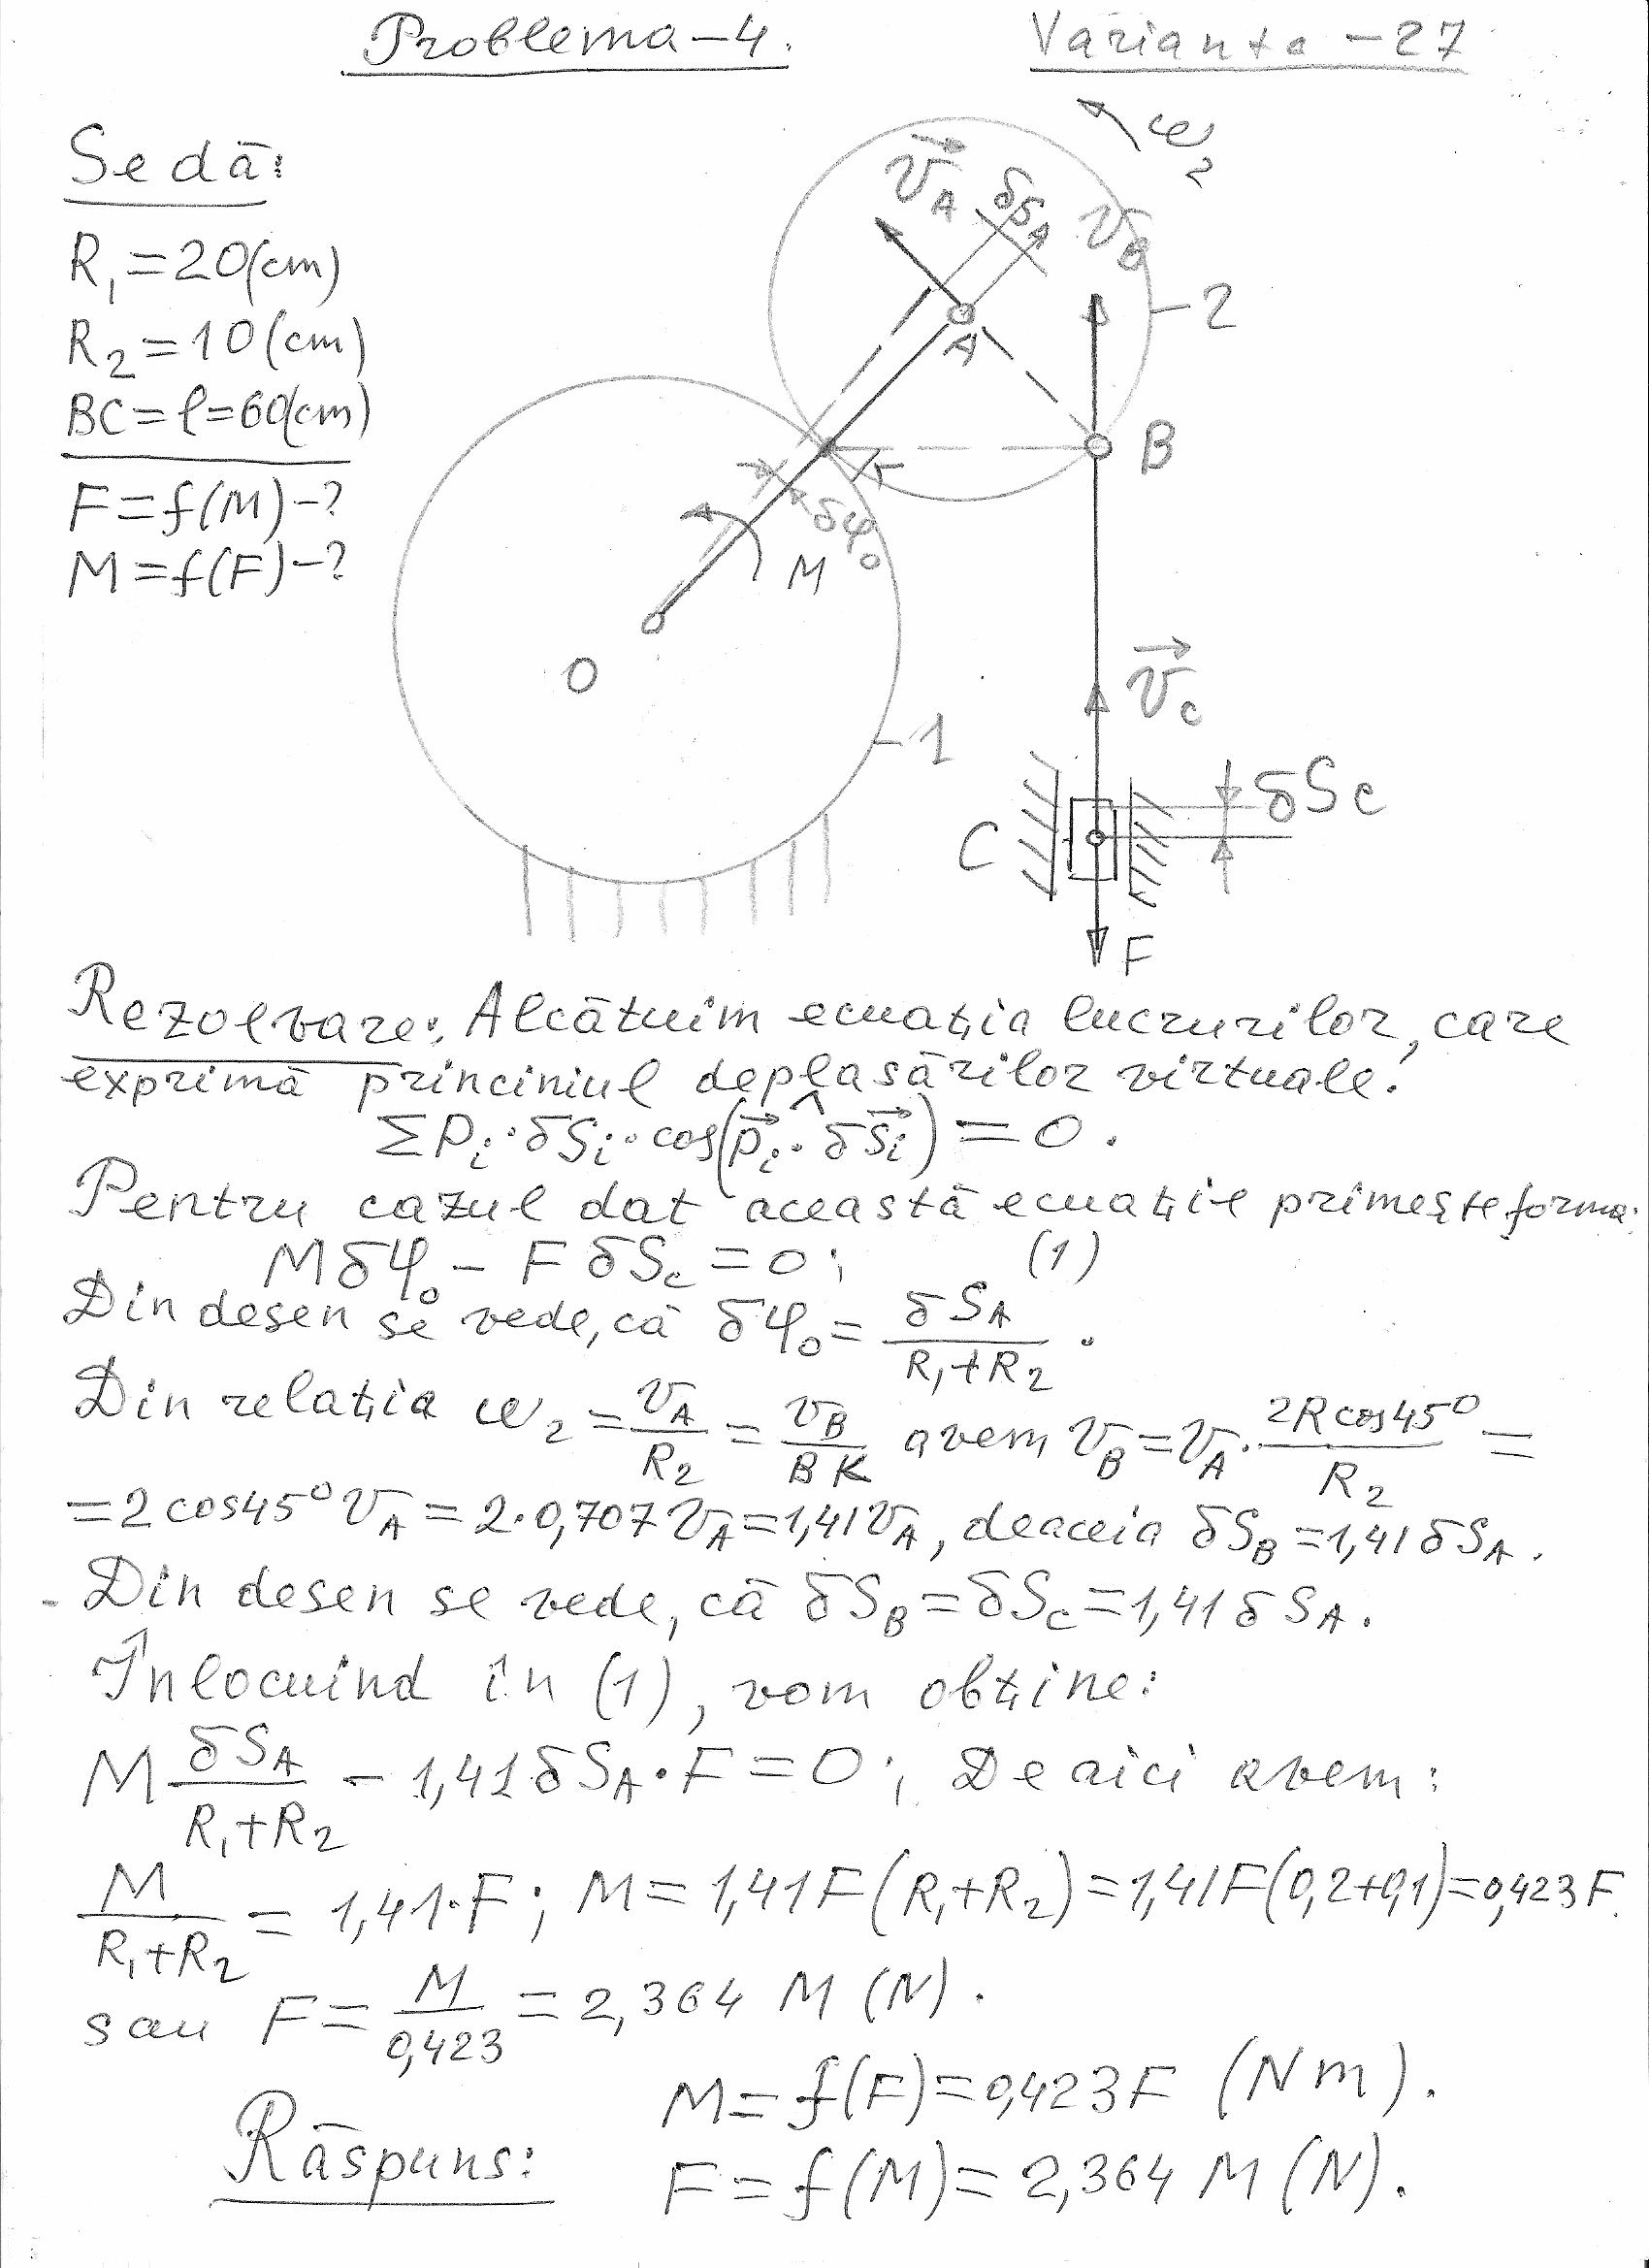 Problema-4. Varianta-27
Se dă:
R₁=20(cm)
R₂=10(cm)
BC=ℓ=60(cm)
F=f(M)-?
M=f(F)-?
ω₂
v⃗_A δS_A v_B
2
A
B
K
δφ₀
M
O
v⃗_C
1
δS_C
C
F
Rezolvare: Alcătuim ecuația lucrurilor, care
exprimă princiniul deplasărilor virtuale:
ΣP_i·δS_i·cos(p⃗_i·^δs⃗_i)=0.
Pentru cazul dat această ecuație primește forma:
Mδφ₀ - FδS_C = 0; (1)
Din desen se vede, că δφ₀ = δS_A/(R₁+R₂).
Din relația ω₂ = v_A/R₂ = v_B/BK avem v_B = v_A·2Rcos45°/R₂ =
=2cos45°v_A=2·0,707v_A=1,41v_A, deaceia δS_B=1,41δS_A.
Din desen se vede, că δS_B=δS_C=1,41δS_A.
Înlocuind în (1), vom obține:
M δS_A/(R₁+R₂) - 1,41δS_A·F=0; De aici avem:
M/(R₁+R₂) = 1,41·F; M=1,41F(R₁+R₂)=1,41F(0,2+0,1)=0,423F.
sau F = M/0,423 = 2,364 M (N).
M=f(F)=0,423F (Nm).
Răspuns: F=f(M)=2,364 M (N).